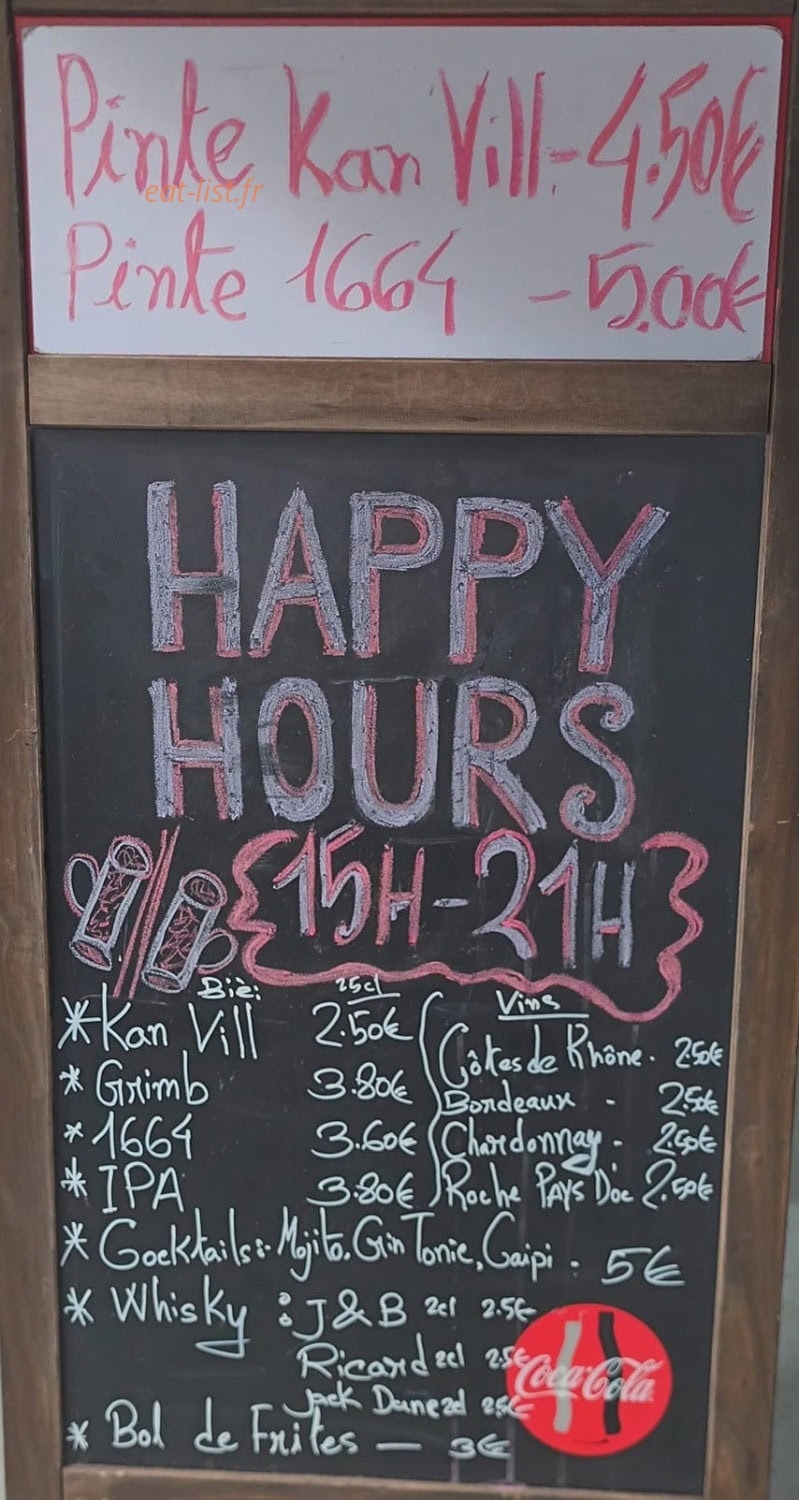 Pinte Kan Vill - 4.50€
eat-list.fr
Pinte 1664 - 5.00€
HAPPY
HOURS
15H-21H
Biè: 25cl
* Kan Vill 2.50€
* Grimb 3.80€
* 1664 3.60€
* IPA 3.80€
Vins
Côtes de Rhône. 2.50€
Bordeaux - 2.50€
Chardonnay - 2.50€
Roche PAYS D'oc 2.50€
* Cocktails:- Mojito, Gin Tonic, Caipi - 5€
* Whisky : J&B 2cl 2.5€
Ricard 2cl 2.5€
Jack Dane 2cl 2.5€
* Bol de Frites — 3€
Coca-Cola